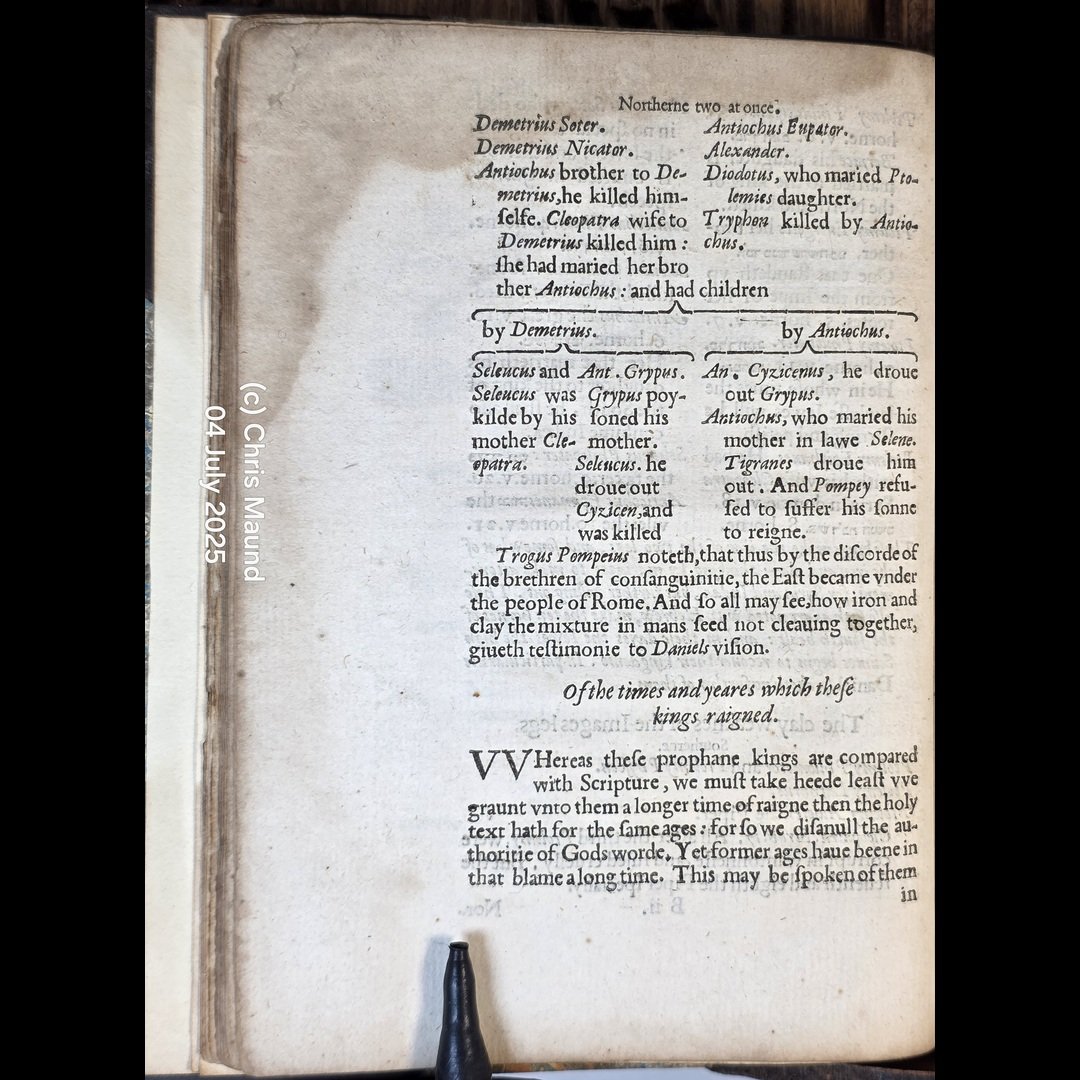 Northerne two at once.
Demetrius Soter.
Demetrius Nicator.
Antiochus brother to De-
metrius, he killed him-
selfe. Cleopatra wife to
Demetrius killed him :
she had maried her bro
ther Antiochus : and had children
Antiochus Eupator.
Alexander.
Diodotus, who maried Pto-
lemies daughter.
Tryphon killed by Antio-
chus.
by Demetrius.
by Antiochus.
Seleucus and Ant. Grypus.
Seleucus was
kilde by his
mother Cle-
opatra.
Grypus poy-
soned his
mother.
Seleucus. he
droue out
Cyzicen, and
was killed
An. Cyzicenus, he droue
out Grypus.
Antiochus, who maried his
mother in lawe Selene.
Tigranes droue him
out. And Pompey refu-
sed to suffer his sonne
to reigne.
Trogus Pompeius noteth, that thus by the discorde of
the brethren of consanguinitie, the East became vnder
the people of Rome. And so all may see, how iron and
clay the mixture in mans seed not cleauing together,
giueth testimonie to Daniels vision.
Of the times and yeares which these
kings raigned.
VVHereas these prophane kings are compared
with Scripture, we must take heede least vve
graunt vnto them a longer time of raigne then the holy
text hath for the same ages : for so we disanull the au-
thoritie of Gods worde. Yet former ages haue beene in
that blame a long time. This may be spoken of them
in
(c) Chris Maund
04 July 2025